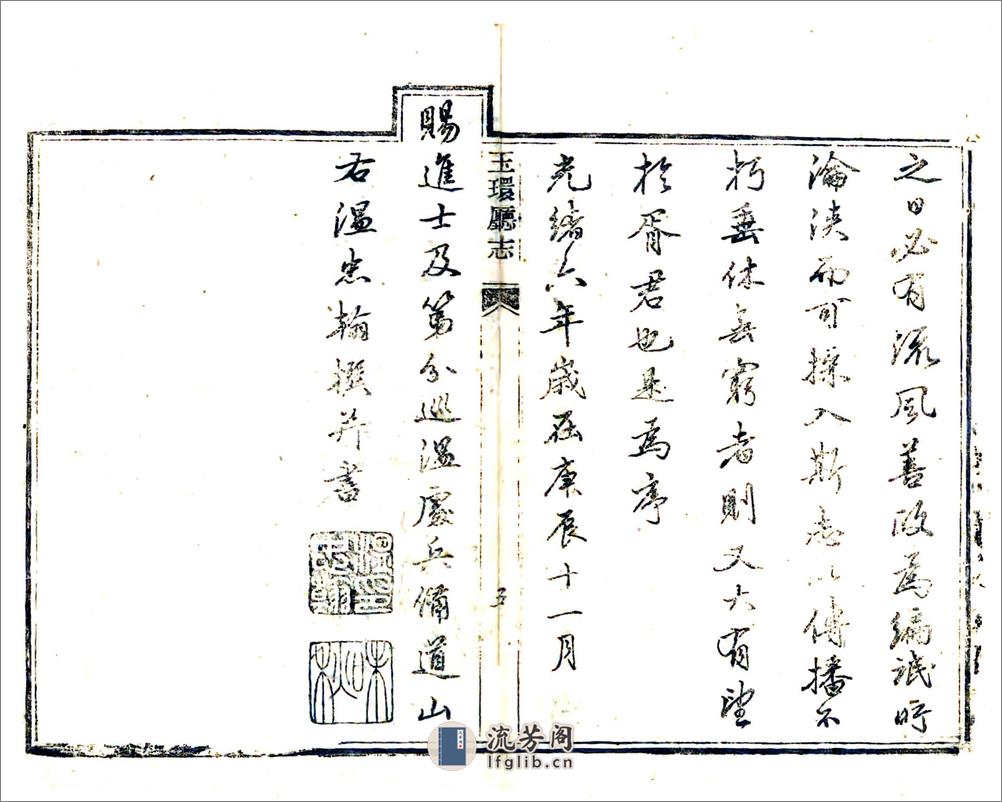 之日必有流風善政為編氓時
淪浹而可採入斯志以傳播不
朽垂休無窮者則又大有望
於胥君也是為序
光緒六年歲在庚辰十一月
玉環廳志
五
賜進士及第分巡溫處兵備道山
右溫忠翰撰并書
流芳阁
lfglib.cn